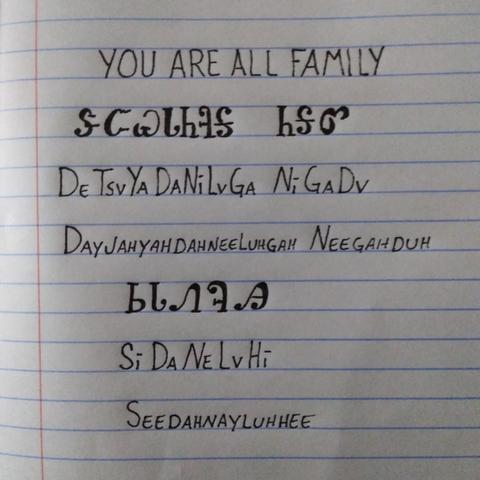 YOU ARE ALL FAMILY
ᏕᏨᏯᏓᏂᎸᎦ ᏂᎦᏛ
DeTsvYaDaNiLvGa NiGaDv
DAYJAHYAHDAHNEELUHGAH NEEGAHDUH
ᏏᏓᏁᎸᎯ
SiDaNeLvHi
SEEDAHNAYLUHHEE